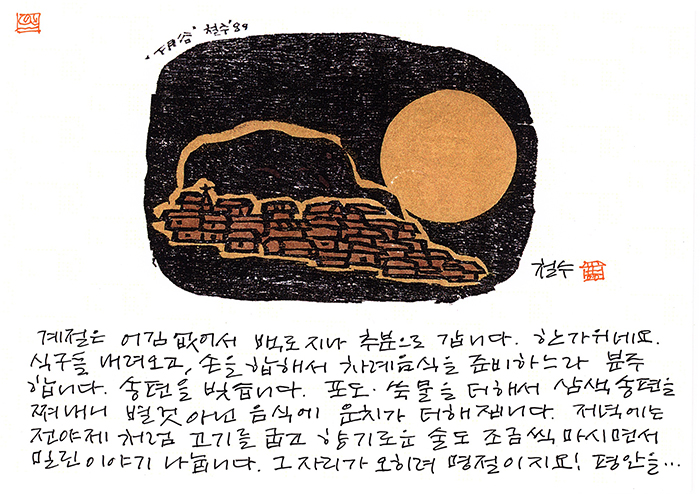 "下月谷" 철수 '89
철수
계절은 어김 없어서 백로 지나 추분으로 갑니다. 한가위네요.
식구들 내려오고, 손을 합해서 차례음식을 준비하느라 분주
합니다. 송편을 빚습니다. 포도·쑥물을 더해서 삼색송편을
쪄내니 별것 아닌 음식에 운치가 더해집니다. 저녁에는
전야제 처럼 고기를 굽고 향기로운 술도 조금씩 마시면서
밀린 이야기 나눕니다. 그 자리가 오히려 명절이지요! 평안을...